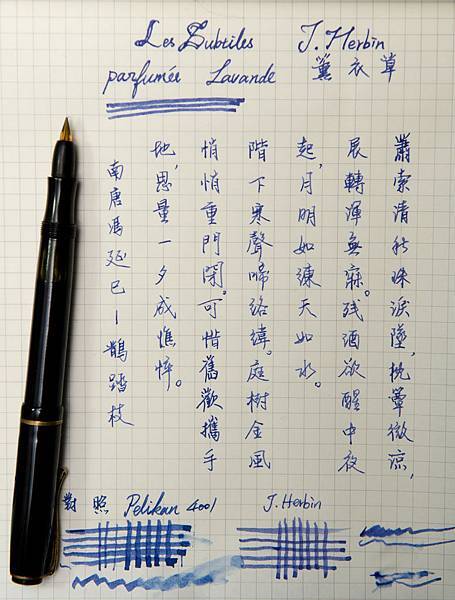 Les Subtiles J. Herbin
parfumée Lavande 薰衣草
蕭索清秋珠淚墜,枕簟微涼,
展轉渾無寐。残酒欲醒中夜
起,月明如練天如水。
階下寒聲啼絡緯。庭樹金風
悄悄重門閉。可惜舊歡攜手
地,思量一夕成憔悴。
南唐馮延巳—鵲踏枝
對照 Pelikan 4001 J. Herbin